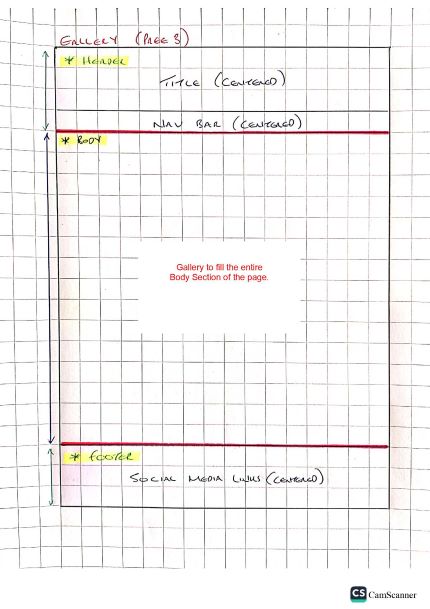 GALLERY (PAGE 3)
* HEADER
TITLE (CENTERED)
NAV BAR (CENTERED)
* BODY
Gallery to fill the entire
Body Section of the page.
* FOOTER
SOCIAL MEDIA LINKS (CENTERED)
CS CamScanner